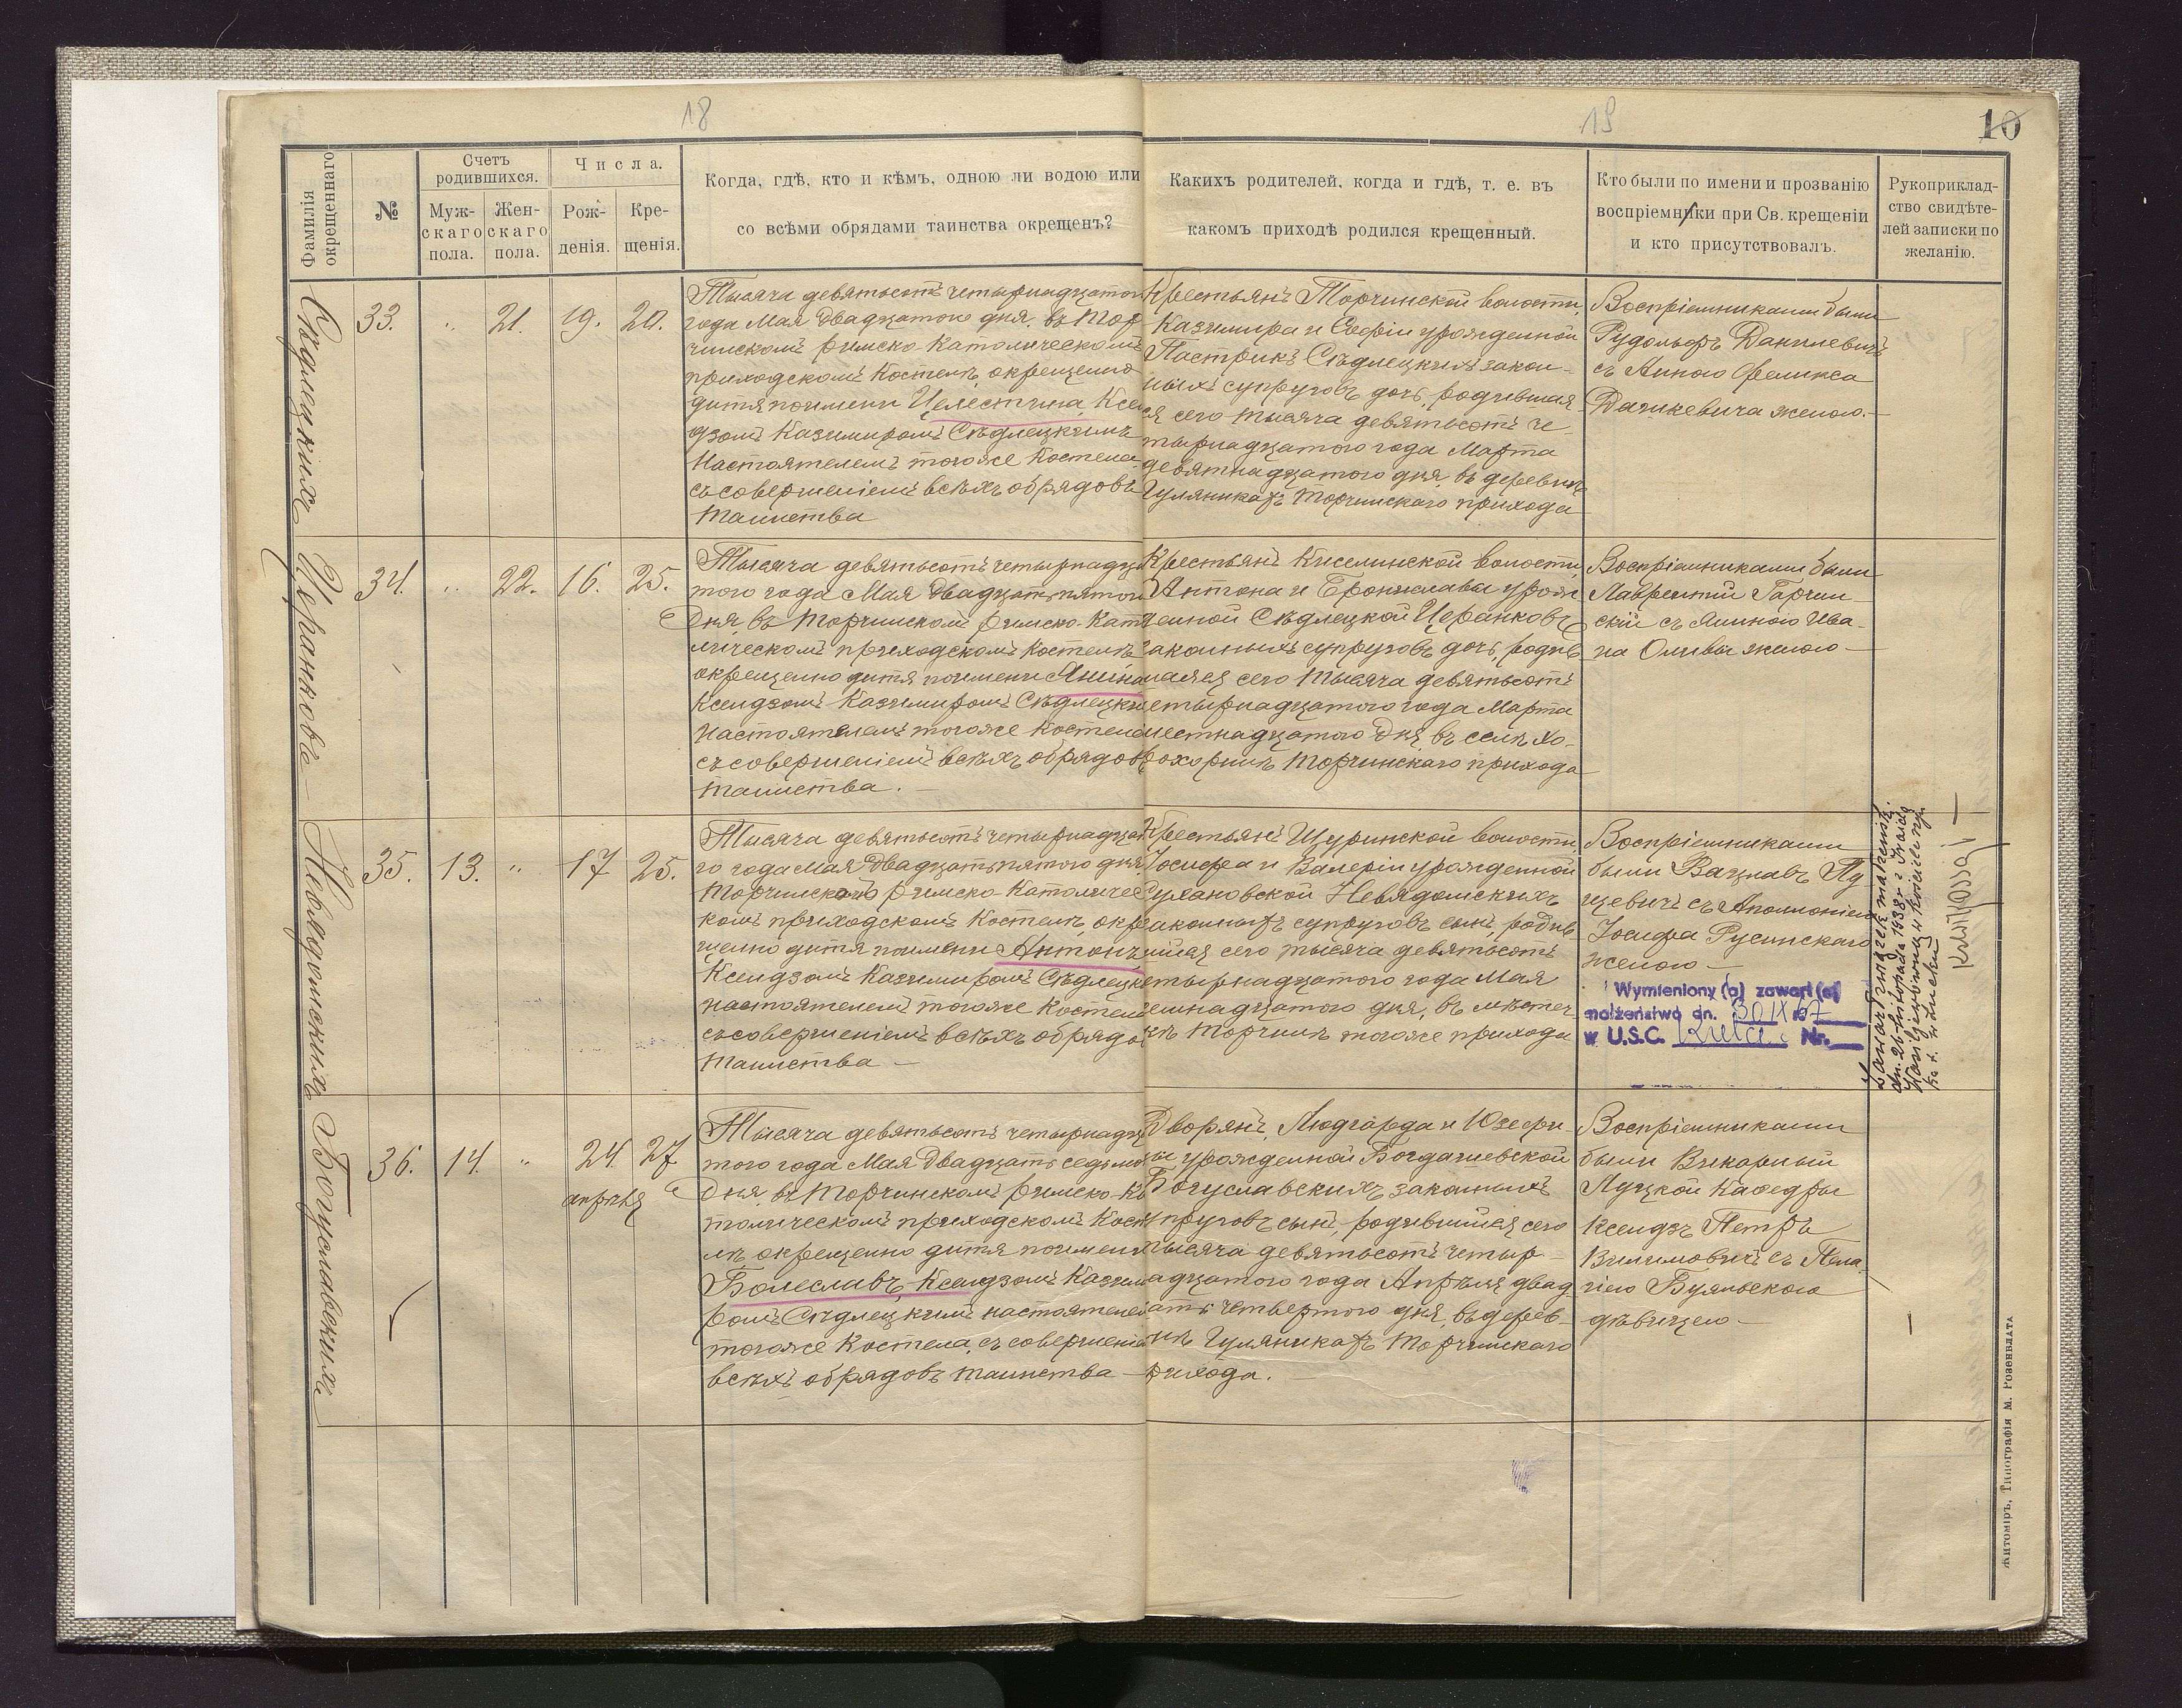 18
19
10
Фамилія окрещеннаго
№
Счетъ родившихся.
Муж-
скаго
пола.
Жен-
скаго
пола.
Числа.
Рож-
денія.
Кре-
щенія.
Когда, гдѣ, кто и кѣмъ, одною ли водою или
со всѣми обрядами таинства окрещенъ?
Какихъ родителей, когда и гдѣ, т. е. въ
какомъ приходѣ родился крещенный.
Кто были по имени и прозванію
воспріемники при Св. крещеніи
и кто присутствовалъ.
Рукоприклад-
ство свидѣте-
лей записки по
желанію.
Сѣдлецкихъ
33. " 21. 19. 20.
Тысяча девятьсотъ четырнадцатого
года Мая двадцатого дня, въ Тор
чинскомъ римско-католическомъ
приходскомъ костелѣ окрещено
дитя по имени Целестина, Ксен
дзомъ Казимиромъ Сѣдлецкимъ
Настоятелемъ тогоже Костела
съ совершеніемъ всѣхъ обрядовъ
таинства
Крестьянъ Торчинской волости,
Казимира и Софіи урожденной
Пастрикъ Сѣдлецкихъ закон-
ныхъ супруговъ дочь, родившая
ся сего тысяча девятьсотъ че
тырнадцатого года Марта
девятнадцатого дня, въ деревнѣ
Гуляникахъ Торчинскаго прихода
Воспріемниками были
Рудольфъ Данилевичъ
съ Анною Феликса
Дашкевича женою.
Церанковъ
34. " 22. 16. 25.
Тысяча девятьсотъ четырнадца
того года Мая двадцать пятого
дня, въ Торчинскомъ римско-като
лическомъ приходскомъ костелѣ
окрещено дитя по имени Янина
Ксендзомъ Казимиромъ Сѣдлецки
Настоятелемъ тогоже Костела
съ совершеніемъ всѣхъ обрядовъ
таинства.
Крестьянъ Киселинской волости,
Антона и Брониславы урож
денной Сѣдлецкой Церанковъ
законныхъ супруговъ дочь, родив
шаяся сего тысяча девятьсотъ
четырнадцатого года Марта
шестнадцатого дня, въ селѣ Хо-
рохоринѣ Торчинскаго прихода
Воспріемниками были
Лаврентій Гарчин-
скій съ Анною Ива-
на Оливы женою
Невядомскихъ
35. 13. " 17 25.
Тысяча девятьсотъ четырнадцато
го года Мая двадцать пятого дня
Торчинскомъ римско-католичес
комъ приходскомъ Костелѣ, окре
щено дитя по имени Антонъ
Ксендзомъ Казимиромъ Сѣдлецки
настоятелемъ тогоже Костела
съ совершеніемъ всѣхъ обрядо
таинства
Крестьянъ Щуринской волости,
Іосифа и Валеріи урожденной
Гулановской Невядомскихъ
законныхъ супруговъ сынъ, родив
шійся сего тысяча девятьсотъ
четырнадцатого года Мая
семнадцатого дня, въ мѣстеч
кѣ Торчинѣ тогоже прихода
Воспріемниками
были Вацлавъ Лу
цевичъ съ Аполлоніею
Іосифа Русинскаго
женою
Wymieniony (a) zawarł (a)
małżeństwo dn. 30 IX 67
w U.S.C. Nr.
Zawarł związek małżeński
dn. 26 listopada 1938 r. z
w kościele
kat. w Łucku
Богуславскихъ
36. 14. " 24 27
апрѣля
Тысяча девятьсотъ четырнадца
того года Мая двадцать седьмого
дня, въ Торчинскомъ римско-ка
толическомъ приходскомъ Косте
лѣ окрещено дитя по имени
Болеславъ, Ксендзомъ Казими
ромъ Сѣдлецкимъ настоятелемъ
тогоже Костела, съ совершеніемъ
всѣхъ обрядовъ таинства
Дворянъ, Людгарда и Юзефи-
ы урожденной Богдашевской
Богуславскихъ законныхъ
супруговъ сынъ, родившійся сего
тысяча девятьсотъ четыр-
надцатого года Апрѣля двад
цать четвертого дня, въ дерев-
нѣ Гуляникахъ Торчинскаго
прихода.
Воспріемниками
были Викарный
Луцкой Каѳедры
Ксендзъ Петръ
Вилимовичъ съ Пела-
гіею Буяльскою
дѣвицею
Житоміръ, Типографія М. Розенблата